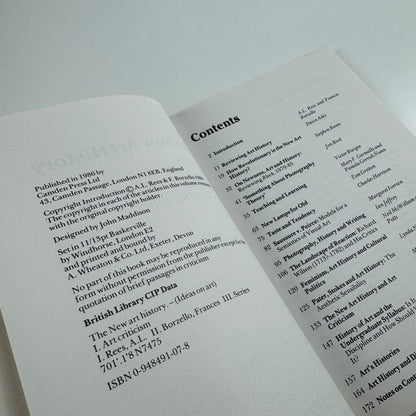 Published in 1986 by
Camden Press Ltd
43, Camden Passage, London N1 8EB, England
Copyright Introduction © A.L. Rees & F. Borzello 1986
The copyright in each of the articles in this volume remains
with the original copyright holder.
Designed by John Maddison
Set in 11/13pt Baskerville
by Windhorse, London E2
and printed and bound by
A. Wheaton & Co. Ltd. Exeter, Devon
No part of this book may be reproduced in any
form without permission from the publisher except
quotation of brief passages in criticism
British Library CIP Data
The New art history.—(Ideas on art)
I. Art criticism
I. Rees, A.L. II. Borzello, Frances III. Series
701'.1'8 N7475
ISBN 0-948491-07-8
Contents
2 Introduction
A.L. Rees and Frances
Borzello
11 Reviewing Art History
Dawn Ades
19 How Revolutionary is the New Art
History?
Stephen Bann
32 On Newness, Art and History:
Reviewing Block, 1979-85
Jon Bird
41 'Something About Photography
Theory'
Victor Burgin
55 Teaching and Learning
Tom Gretton
63 New Lamps for Old
Charles Harrison
75 Taste and Tendency
Margaret Iversen
82 Saussure
Semiotics of Visual
95 Photography, History and Writing
100 The Landscape of Reaction: Richard
Wilson (1713?-1782) and His
Critics
120 Feminism, Art History and Cultural
Politics
125 Pater, Stokes and Art History: The
Aesthetic Sensibility
135 The New Art History and Art
Criticism
147 History of Art and the
Undergraduate Syllabus: Is it a
Discipline and How Should We
157 Art's Histories
164 Art History and
172 Notes on